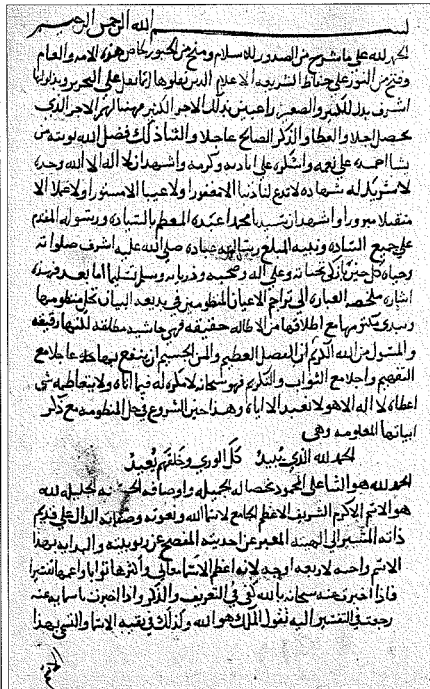 بسم الله الرحمن الرحيم
الحمد لله على ما شرح من الصدور للاسلام ومنح من الحبور لخاص هذه الامه والعام
وفتح من النور على حفاظ الشريعه الاعلام الذين نقلوها
اشرف بذل للكبير والصغير واعد من بذلك الاجر الكثير
يحصل اجلا والعطا والذكر الصالح عاجلا والثنا ذلك فضل الله يوتيه من
يشا احمده على نعمه واشكره على اياديه وكرمه واشهد ان لا اله الا الله وحده
لا شريك له شهاده لا تدع لنا ذنبا الا مغفورا ولا عيبا الا مستورا ولا عملا الا
متقبلا مبرورا واشهد ان سيدنا محمدا عبده المعظم بالسياده ورسوله المقدم
على جميع الساده ونبيه المبلغ عباده صلى الله عليه اشرف صلواته
وحباه كل حين بازكى تحياته وعلى اله وصحبه وذرياته وسلم تسليما اما بعد فهذه
اشاره ملخصه العباره الى تراجم الاعيان المنظومين في بديعة البيان تحل منظومها
وتبدي مكتومها مع اطلاقها من الاطاله حقيقه فهي حاشيه مطالقه للفظها رقيقه
والمسئول من الله الكريم ذي الفضل العظيم والمن الجسيم ان ينفع بها عاجلا مع
التفهيم واجلا مع الثواب والتكريم فهو سبحانه لا مكره له فيما اتاه ولا يتعاظمه شي
اعطاه لا اله الا هو لا نعبد الا اياه وهذا حين الشروع في حل المنظومه مع ذكر
ابياتها المعلومه وهي
الحمد لله الذي يبيد كل الورى وخلقهم يعيد
الحمد لله هو الثنا على المحمود بخصاله الجميله واوصافه الجليله لله
هو الاسم الاكرم الشريف الاعظم الجامع لاسما الله ونعوته وصفاته الدال على قديم
ذاته المشير الى الهيته المعبر عن احديته المفصح عن ربوبيته والبدايه بهذا
الاسم واجبه لاربعه اوجه لانه اعظم الاسما معاني واكثرها ثوابا واعمها تفسيرا
فاذا اخبرت عنه سبحانه بالله كفى في التعريف والذكر واذا اخبرت باسما به عنه
رجعت في التفسير اليه تقول الملك هو الله وكذلك في بقيه الاسما والثني بهذا